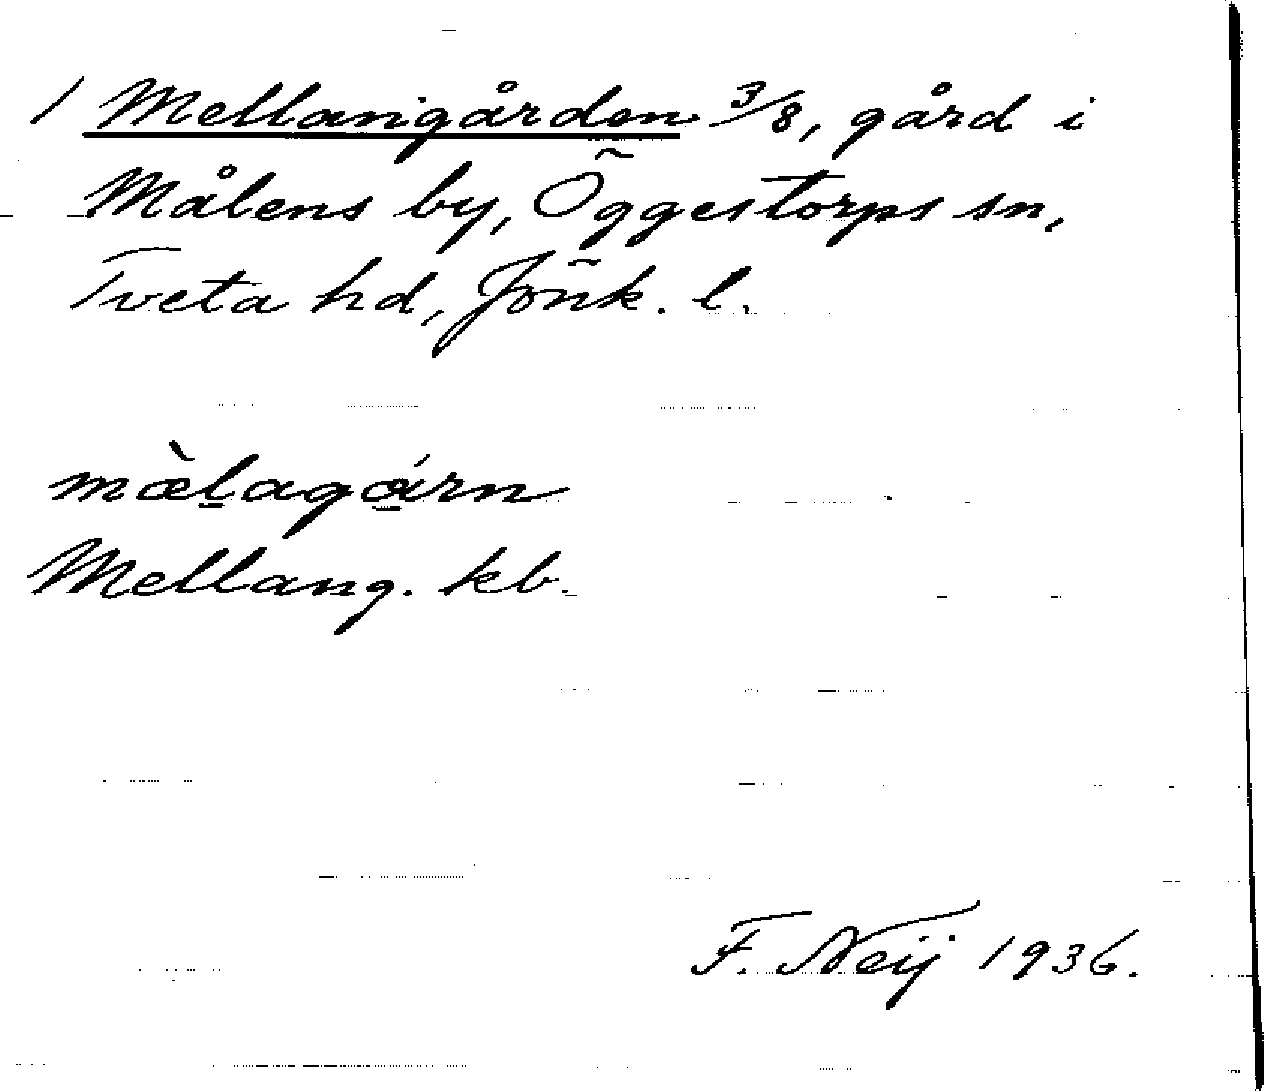 1 Mellangården 3/8, gård i
Målens by, Öggestorps sn,
Tveta hd, Jönk. l.
mæ̀l̲agά̲rn
Mellang. kb.
F. Neij 1936.